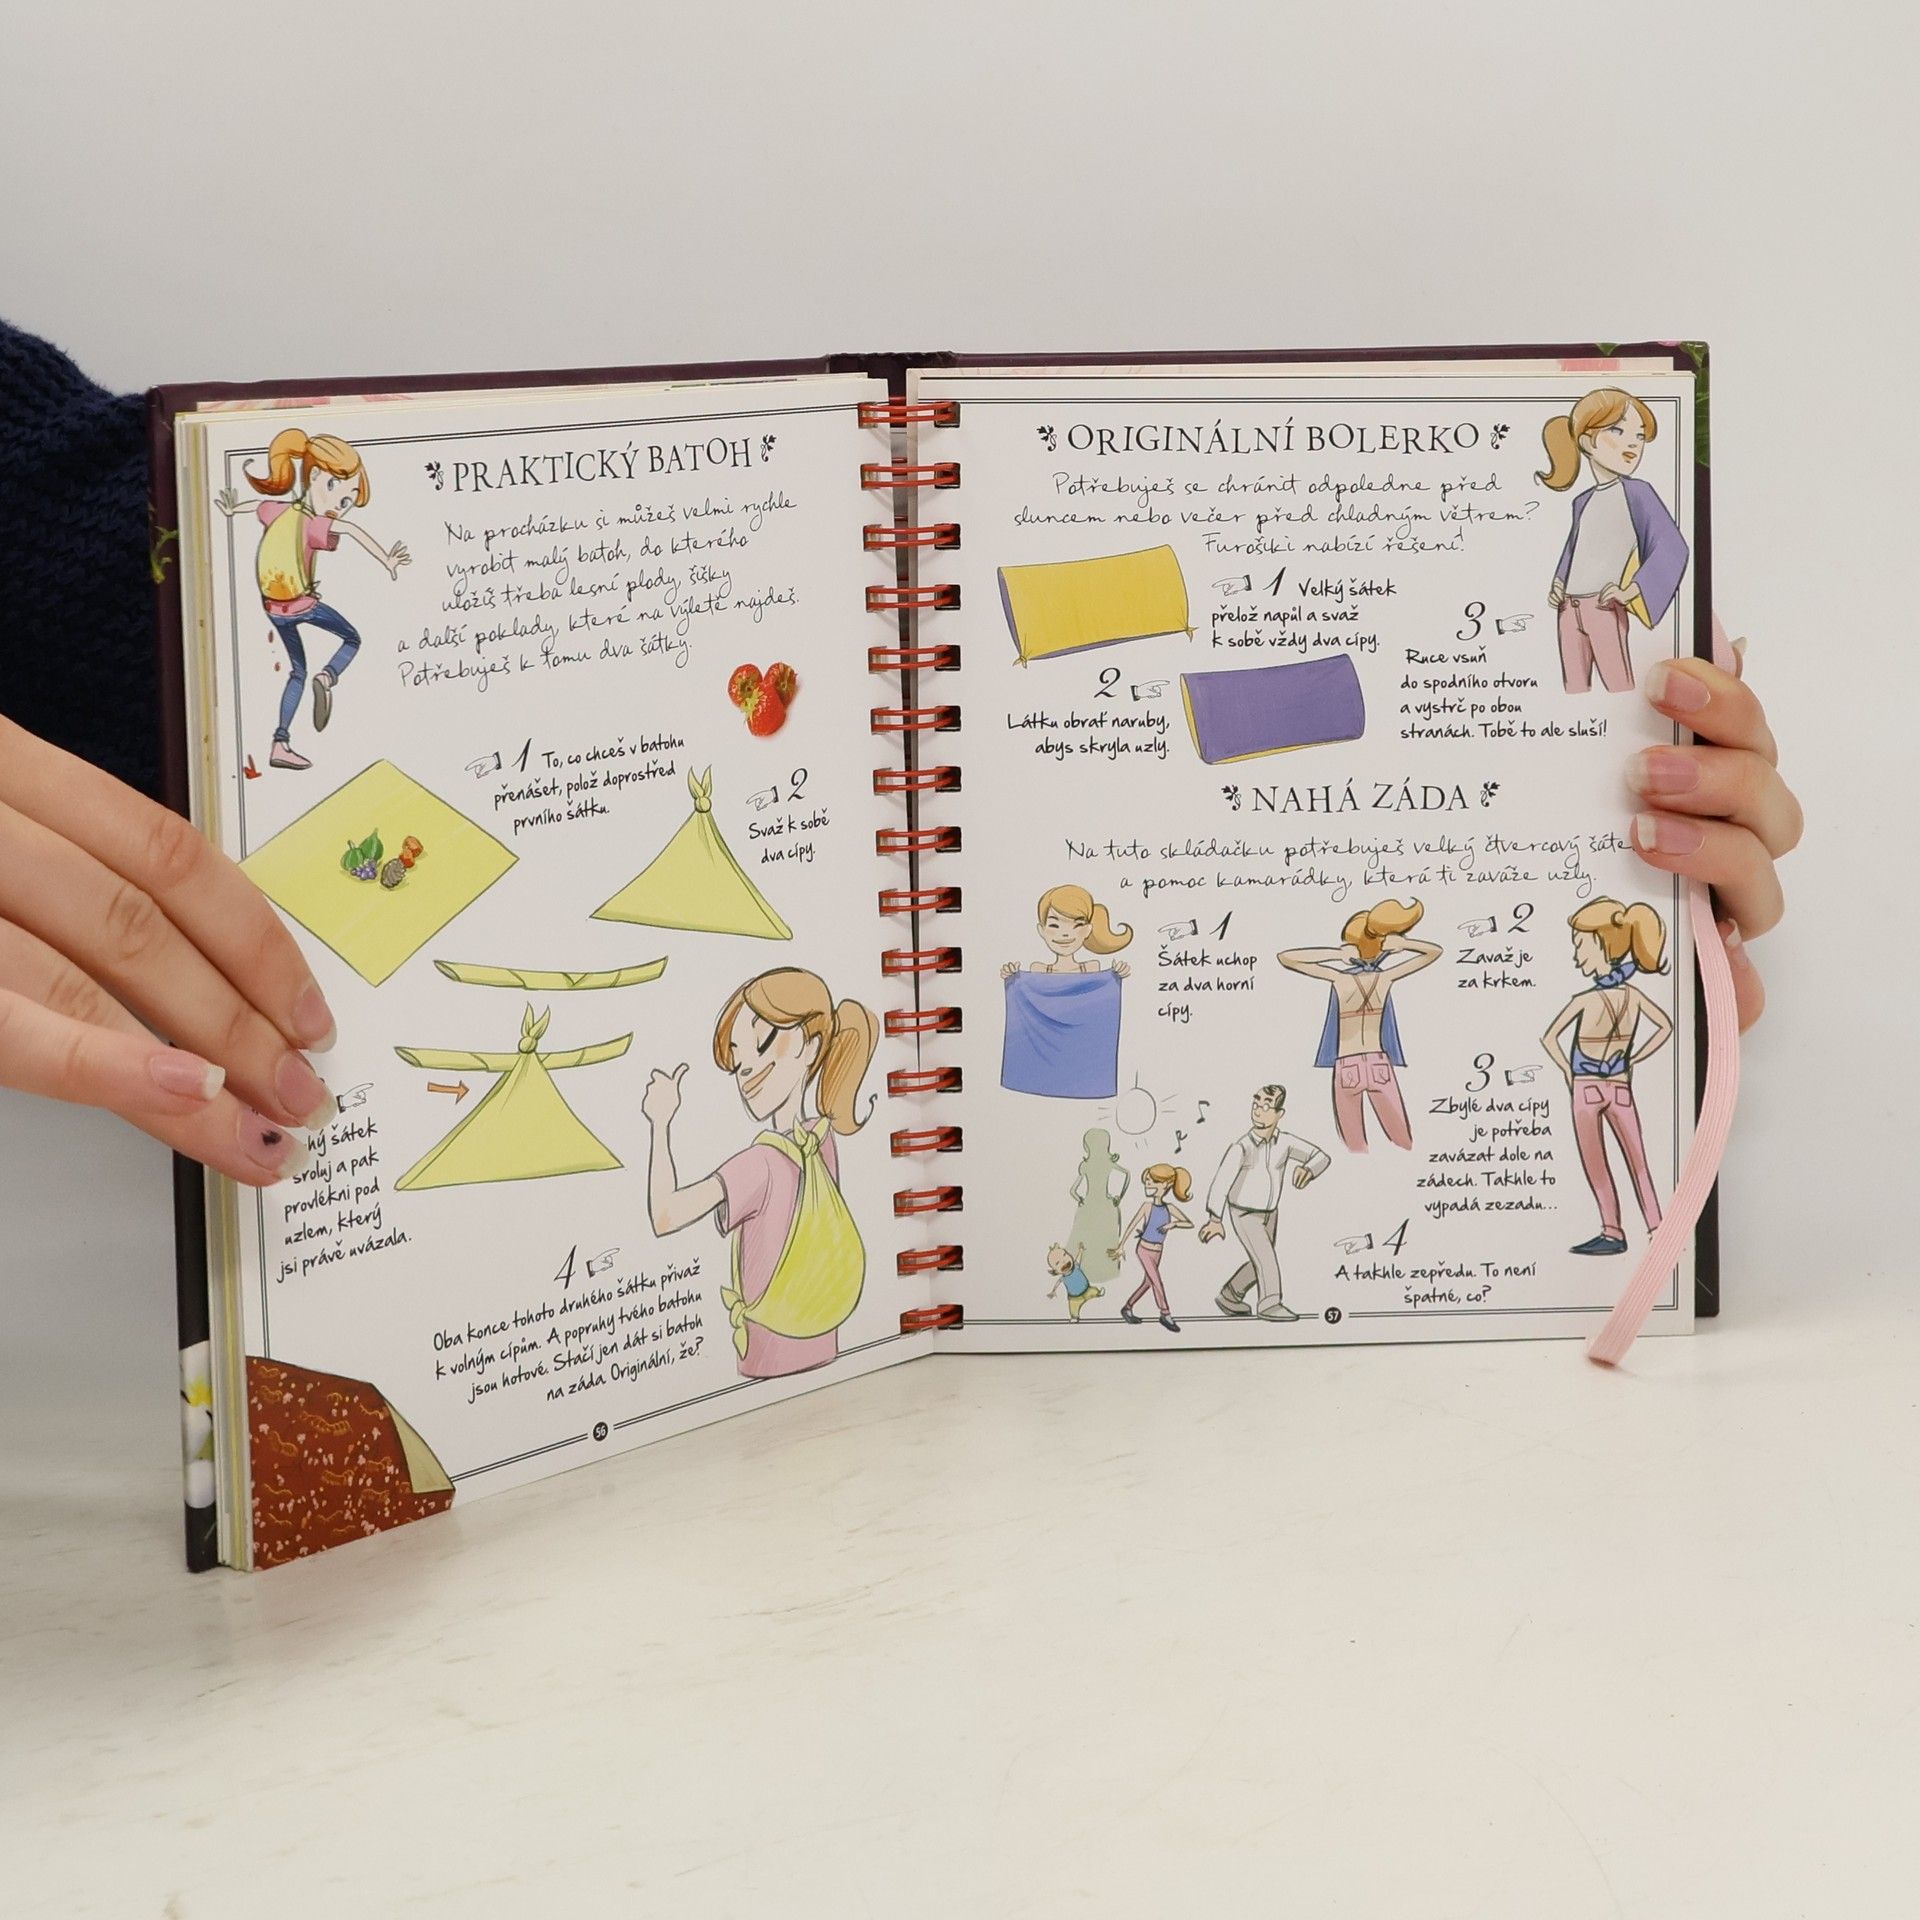 PRAKTICKÝ BATOH
Na procházku si můžeš velmi rychle
vyrobit malý batoh, do kterého
uložíš třeba lesní plody, šišky
a další poklady, které na výletě najdeš.
Potřebuješ k tomu dva šátky.
1 To, co chceš v batohu
přenášet, polož doprostřed
prvního šátku.
2
Svaž k sobě
dva cípy.
hý šátek
sroluj a pak
provlékni pod
uzlem, který
jsi právě uvázala.
4
Oba konce tohoto druhého šátku přivaž
k volným cípům. A popruhy tvého batohu
jsou hotové. Stačí jen dát si batoh
na záda. Originální, že?
56
ORIGINÁLNÍ BOLERKO
Potřebuješ se chránit odpoledne před
sluncem nebo večer před chladným větrem?
Furošiki nabízí řešení!
1 Velký šátek
přelož napůl a svaž
k sobě vždy dva cípy.
2
Látku obrať naruby,
abys skryla uzly.
3
Ruce vsuň
do spodního otvoru
a vystrč po obou
stranách. Tobě to ale sluší!
NAHÁ ZÁDA
Na tuto skládačku potřebuješ velký čtvercový šáte
a pomoc kamarádky, která ti zaváže uzly.
1
Šátek uchop
za dva horní
cípy.
2
Zavaž je
za krkem.
3
Zbylé dva cípy
je potřeba
zavázat dole na
zádech. Takhle to
vypadá zezadu...
4
A takhle zepředu. To není
špatné, co?
57